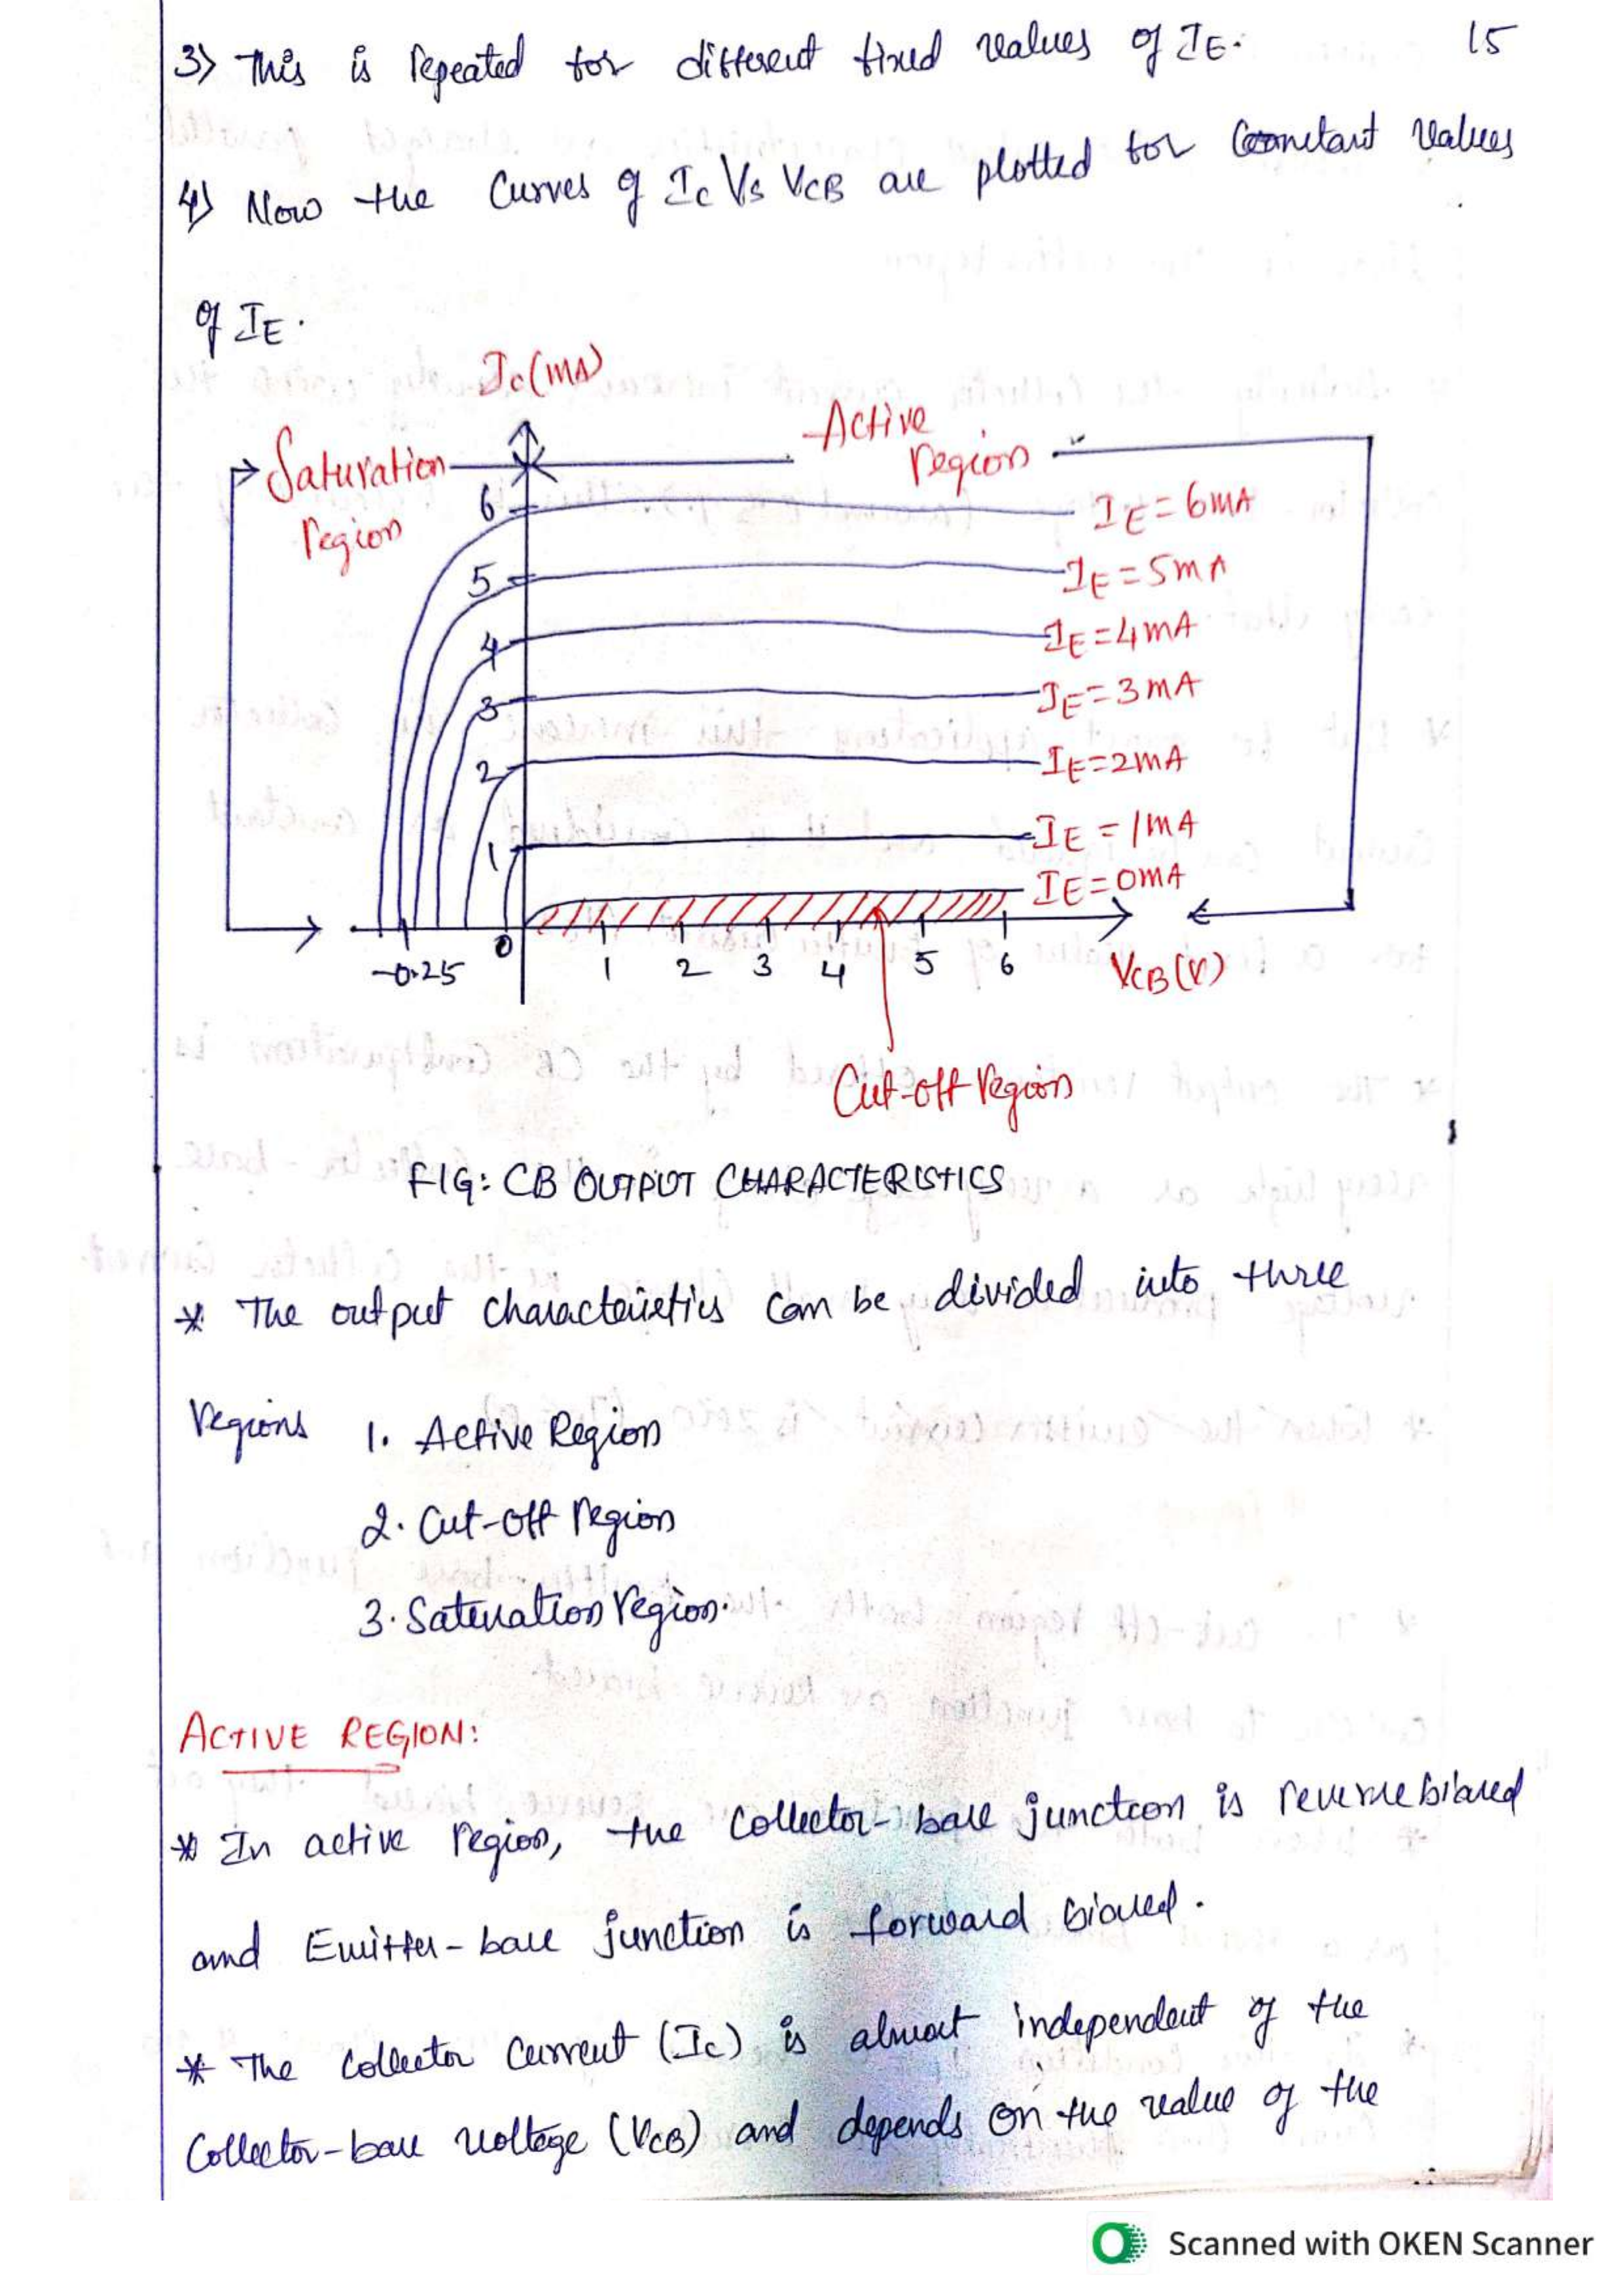 15
3) This is repeated for different fixed values of IE.
4) Now the Curves of Ic Vs VCB are plotted for Constant values
of IE.
Ic(mA)
Active
region
Saturation
region
6
IE=6mA
5
IE=5mA
4
IE=4mA
3
IE=3mA
2
IE=2mA
1
IE=1mA
IE=0mA
-0.25 0 1 2 3 4 5 6 VCB(V)
Cut-off region
FIG: CB OUTPUT CHARACTERISTICS
* The output characteristics can be divided into three
regions 1. Active Region
2. Cut-off region
3. Saturation region.
ACTIVE REGION:
* In active region, the Collector-base junction is reverse biased
and Emitter-base junction is forward biased.
* The Collector Current (Ic) is almost independent of the
Collector-base voltage (VCB) and depends on the value of the
Scanned with OKEN Scanner